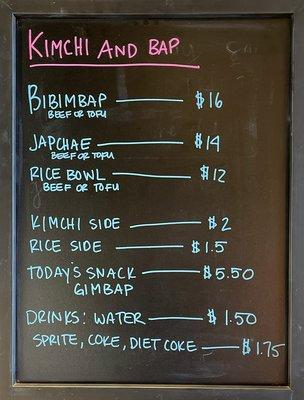 KIMCHI AND BAP
BIBIMBAP — $16
BEEF OR TOFU
JAPCHAE — $14
BEEF OR TOFU
RICE BOWL — $12
BEEF OR TOFU
KIMCHI SIDE — $2
RICE SIDE — $1.5
TODAY'S SNACK — $5.50
GIMBAP
DRINKS: WATER — $1.50
SPRITE, COKE, DIET COKE — $1.75